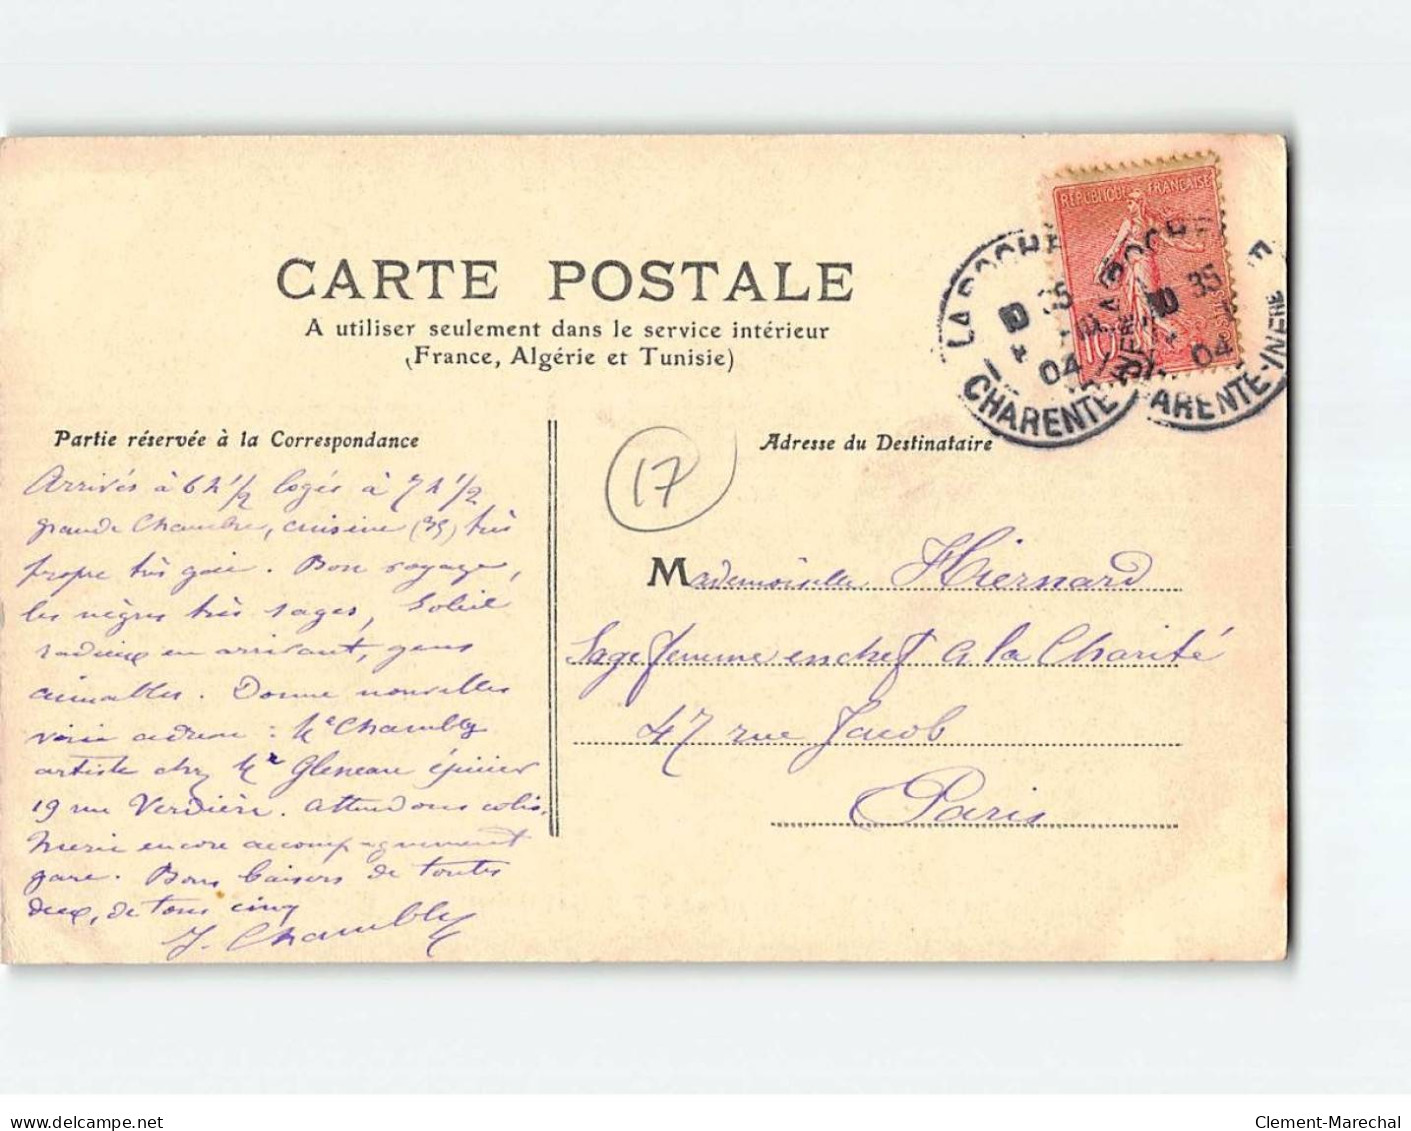 CARTE POSTALE
A utiliser seulement dans le service intérieur
(France, Algérie et Tunisie)
Partie réservée à la Correspondance
Arrivés à 6 h 1/2 logés à 7 h 1/2
grande Chambre, cuisine (35) très
propre très gaie. Bon voyage,
les nègres très sages, Soleil
radieux en arrivant, gens
aimables. Donne nouvelles
voici adresse : Me Chambly
artiste chez Mr Gleneau épicier
19 rue Verdière. Attendons colis.
Merci encore accompagnement
gare. Bons baisers de toutes
deux, de tous cinq
J. Chambly
17
Adresse du Destinataire
Mademoiselle Hiernard
Sage femme en chef a la Charité
47 rue Jacob
Paris
REPUBLIQUE FRANÇAISE
POSTES
10
LA ROCHE
10 35
04
CHARENTE-INFRE
LA ROCHE
10 35
04
CHARENTE-INFRE
delcampe.net
Clement-Marechal